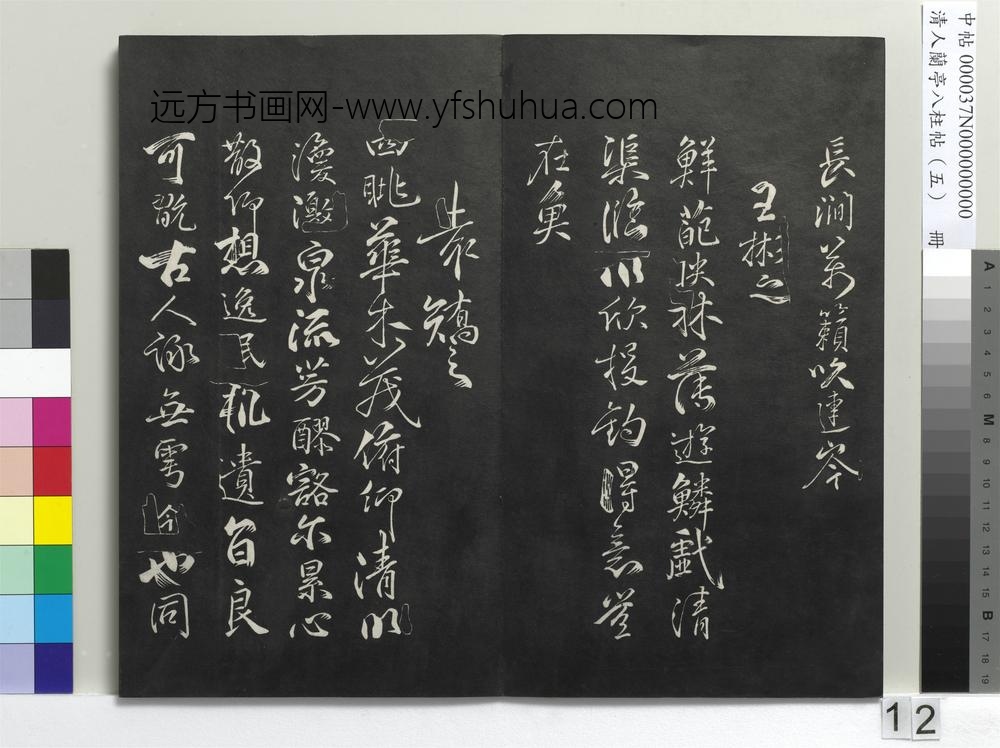 中帖 000037N000000000
清人蘭亭八柱帖（五） 冊
远方书画网-www.yfshuhua.com
長澗萬籟吹連岑
王彬之
鮮葩映林薄遊鱗戲清
渠臨川欣投釣得意豈
在魚
袁矯之
四眺華林茂俯仰清川
渙激泉流芳醪豁尓累心
散仰想逸民軌遺音良
可翫古人詠無雩今也同
A 1 2 3 4 5 6 M 8 9 10 11 12 13 14 15 B 17 18 19
12